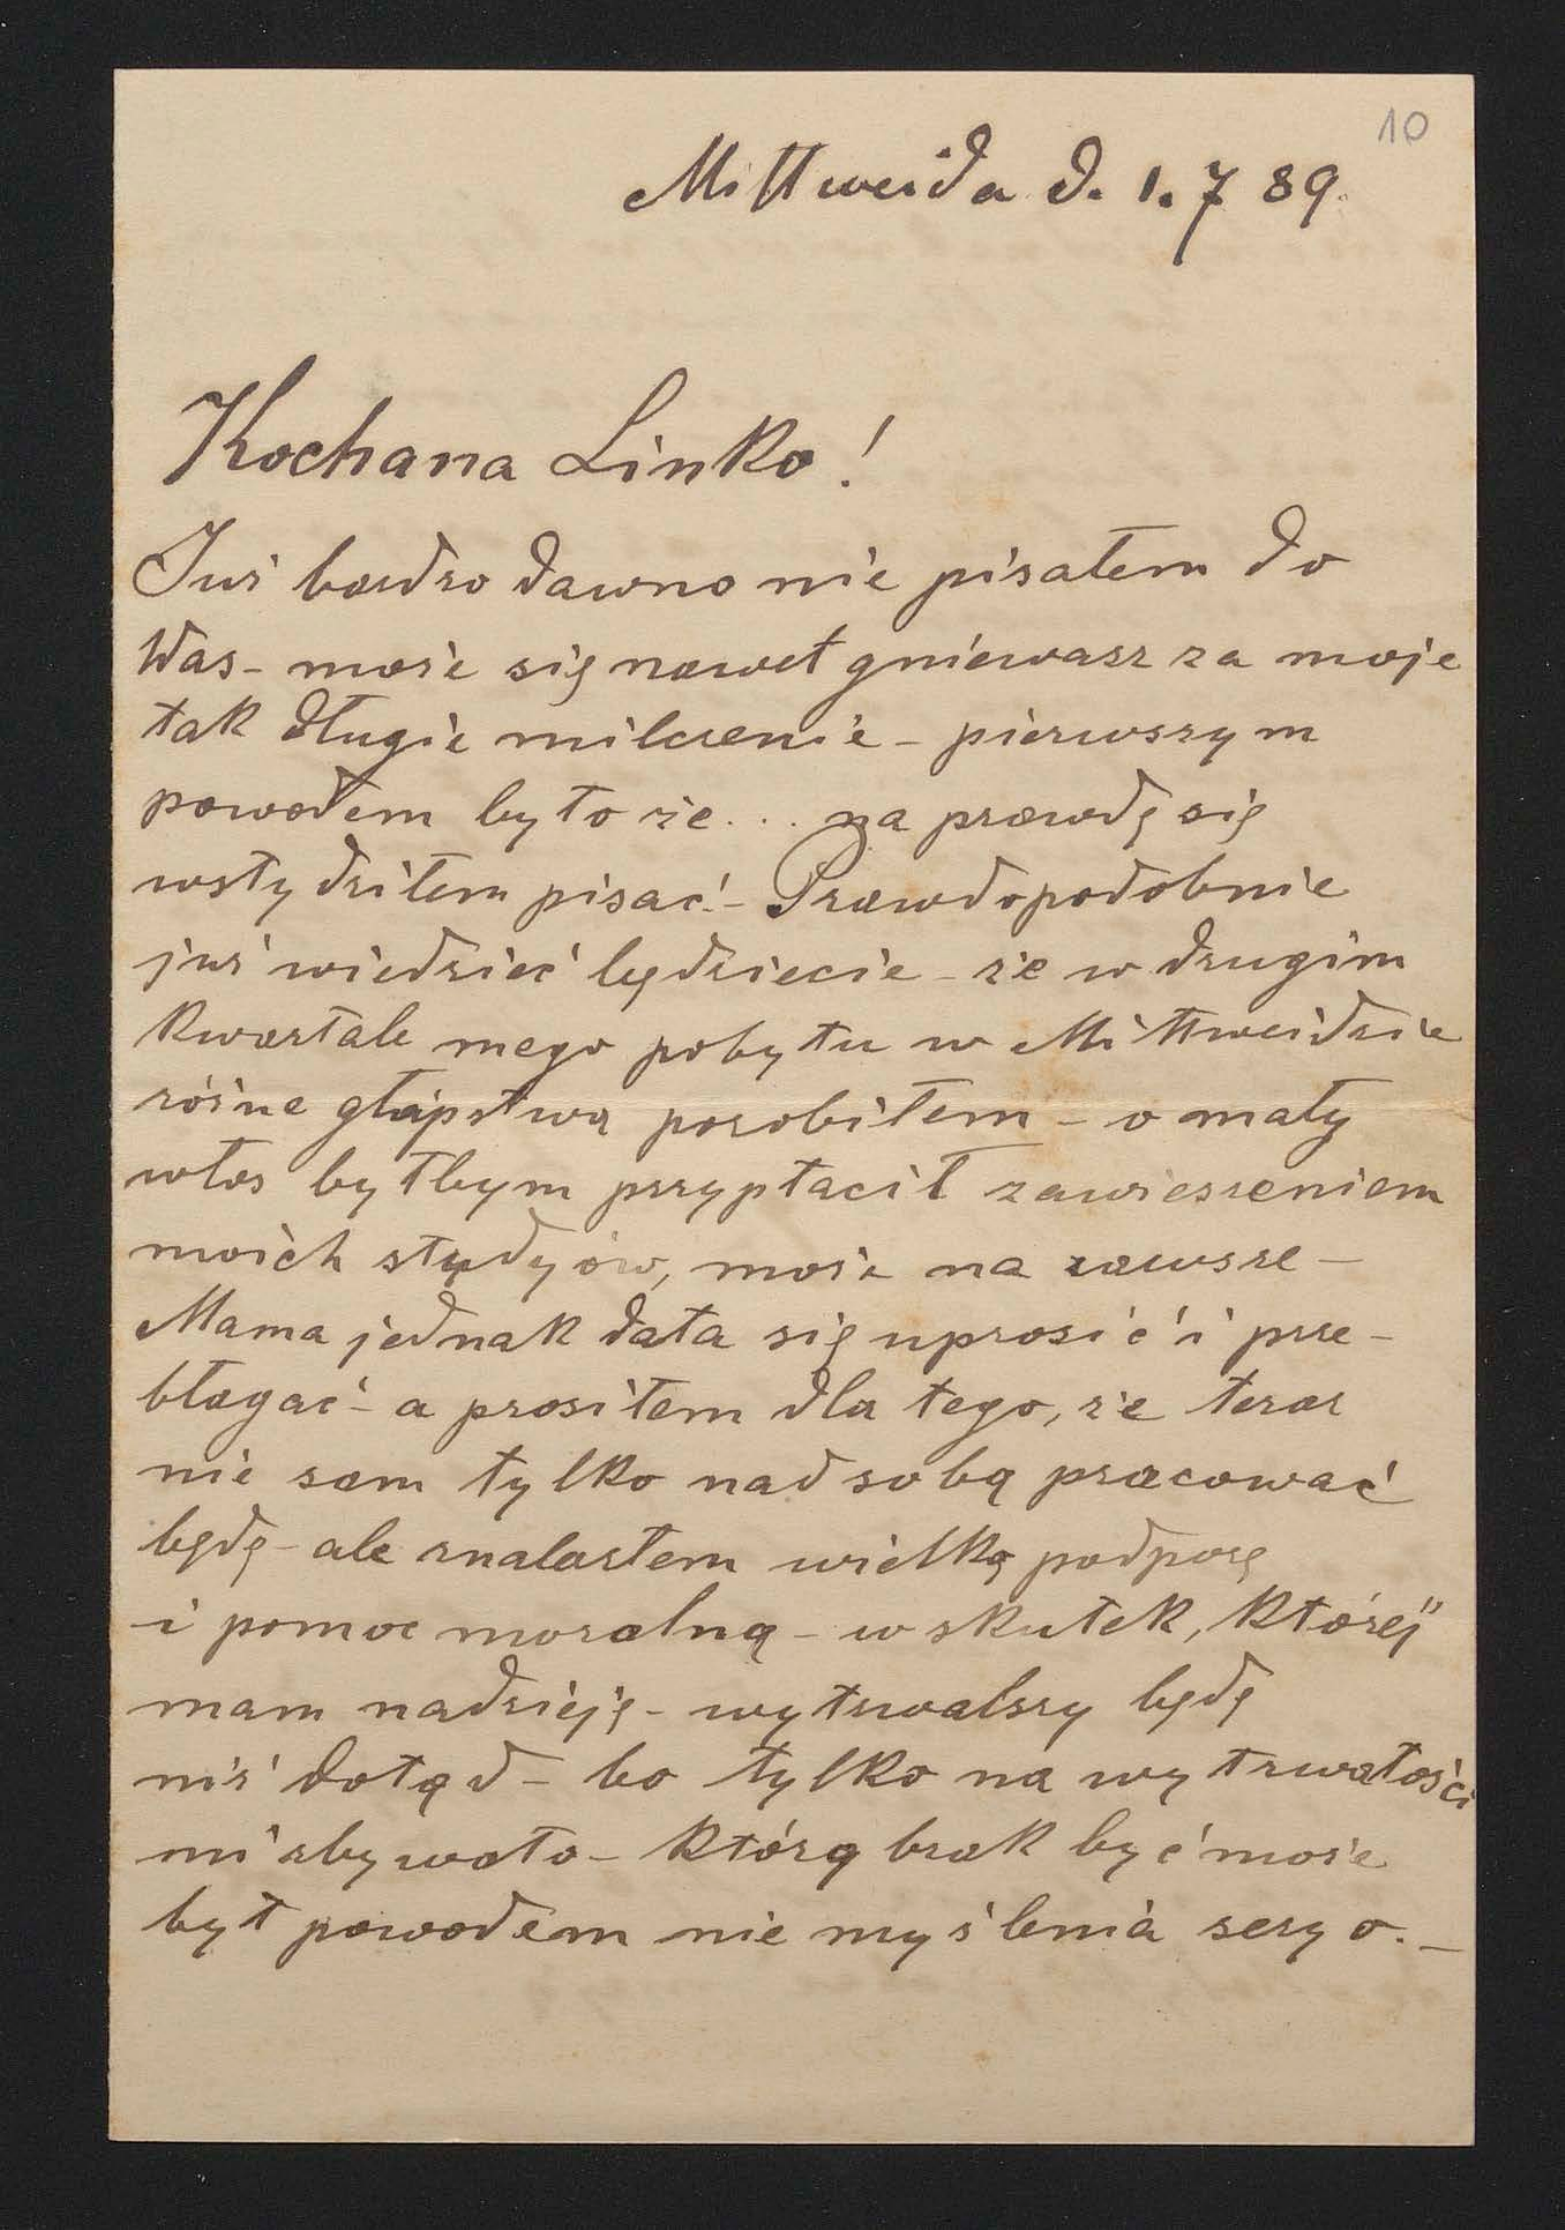 10
Mittweida d. 1. 7 89.
Kochana Linko!
Już bardzo dawno nie pisałem do
Was - może się nawet gniewasz za moje
tak długie milczenie - pierwszym
powodem było że... na prawdę się
wstydziłem pisać! - Prawdopodobnie
już wiedzieć będziecie - że w drugim
kwartale mego pobytu w Mittweidzie
różne głupstwa porobiłem - o mały
włos byłbym przypłacił zawieszeniem
moich studyów, może na zawsze -
Mama jednak dała się uprosić i prze-
błagać - a prosiłem dla tego, że teraz
nie sam tylko nad sobą pracować
będę - ale znalazłem wielką podporę
i pomoc moralną - w skutek, której"
mam nadzieję - wytrwalszy będę
niż dotąd - bo tylko na wytrwałości
mi zbywało - którą brak być może
był powodem nie myślenia seryo. -